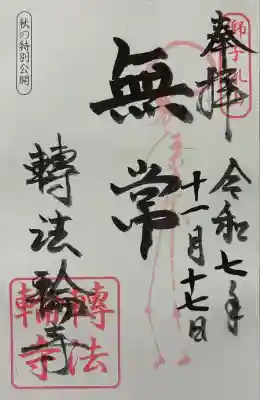 奉拝
令和七年
十一月十七日
無常
轉法輪寺
秋の特別公開
轉法
輪寺